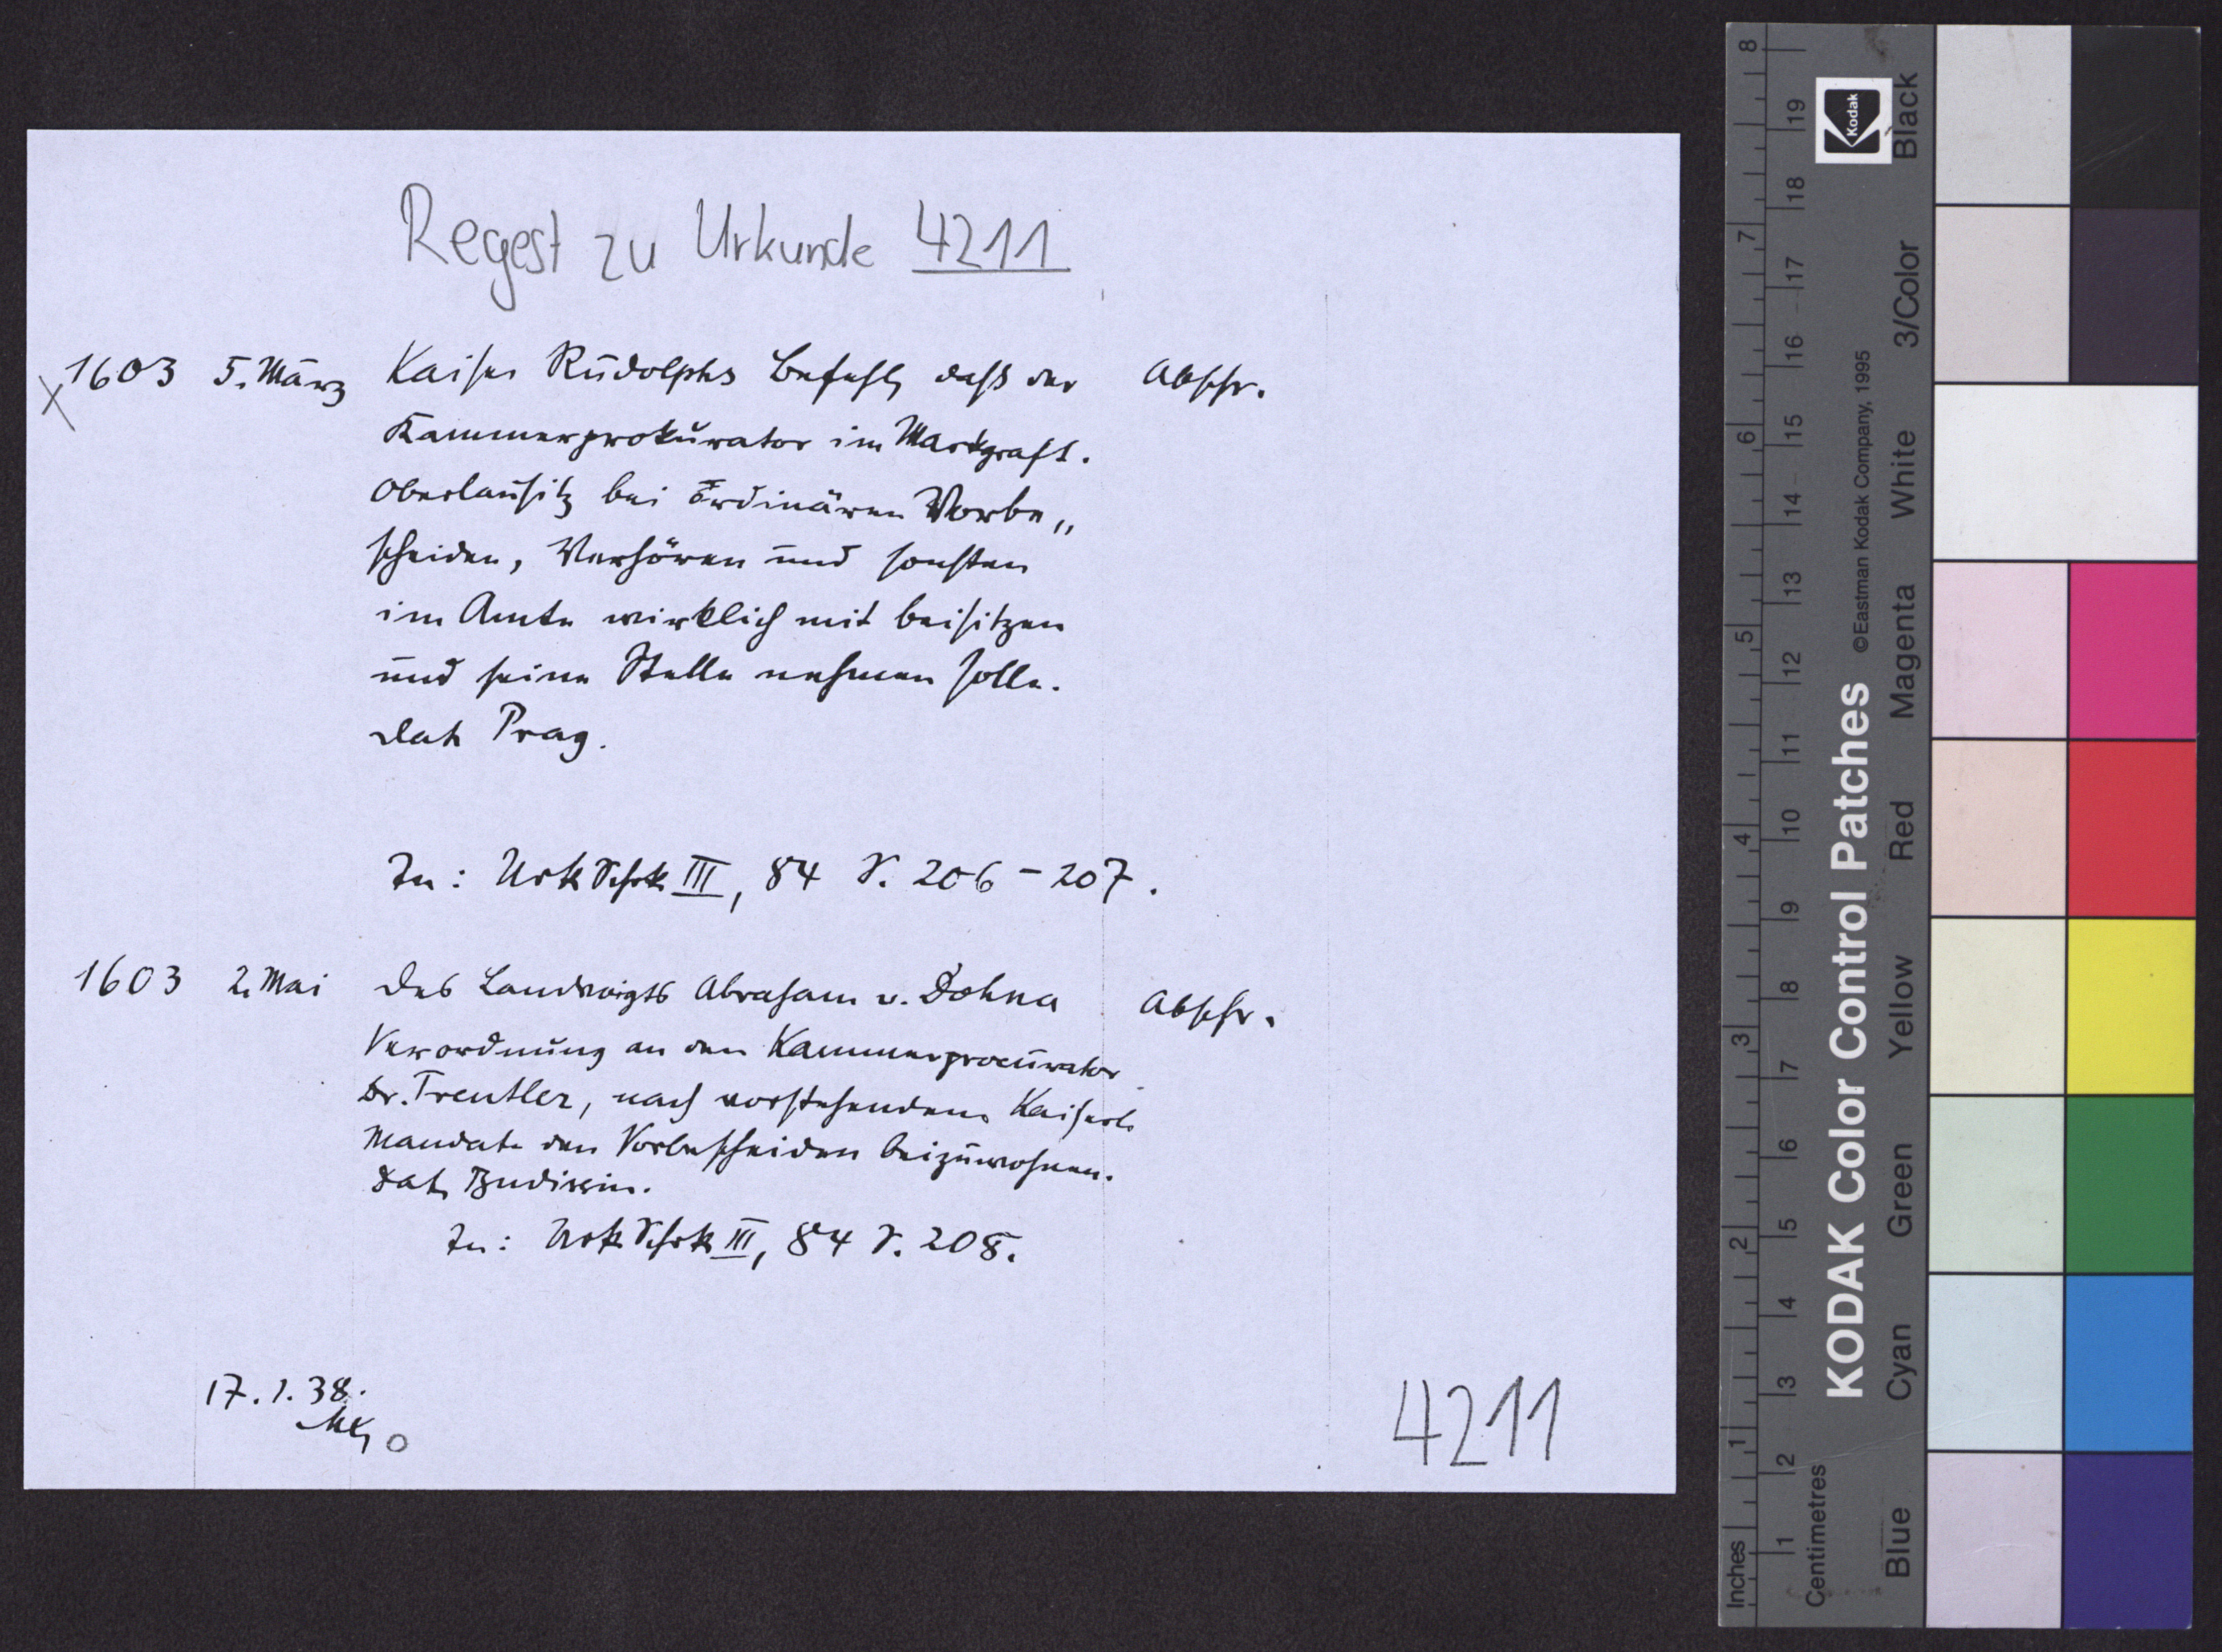 Regest zu Urkunde 4211
1603 5. März Kaiser Rudolphs Befehl, daß der Abschr.
Kammerprokurator im Markgraft.
Oberlausitz bei ordinären Vorbe„
scheiden, Verhören und sonsten
im Amte wirklich mit beisitzen
und seine Stelle nehmen solle.
Dat. Prag.
In: Urk Schrk III, 84 S. 206-207.
1603 2. Mai Des Landvoigts Abraham v. Dohna Abschr.
Verordnung an den Kammerprocurator
Dr. Treutler, nach vorstehendem Kaiserl.
Mandate den Vorbescheiden beizuwohnen.
Dat. Budissin.
In: Urk Schrk III, 84 S. 208.
17.1.38.
4211
KODAK Color Control Patches ©Eastman Kodak Company, 1995
Kodak
Inches 1 2 3 4 5 6 7 8
Centimetres 1 2 3 4 5 6 7 8 9 10 11 12 13 14 15 16 17 18 19
Blue Cyan Green Yellow Red Magenta White 3/Color Black